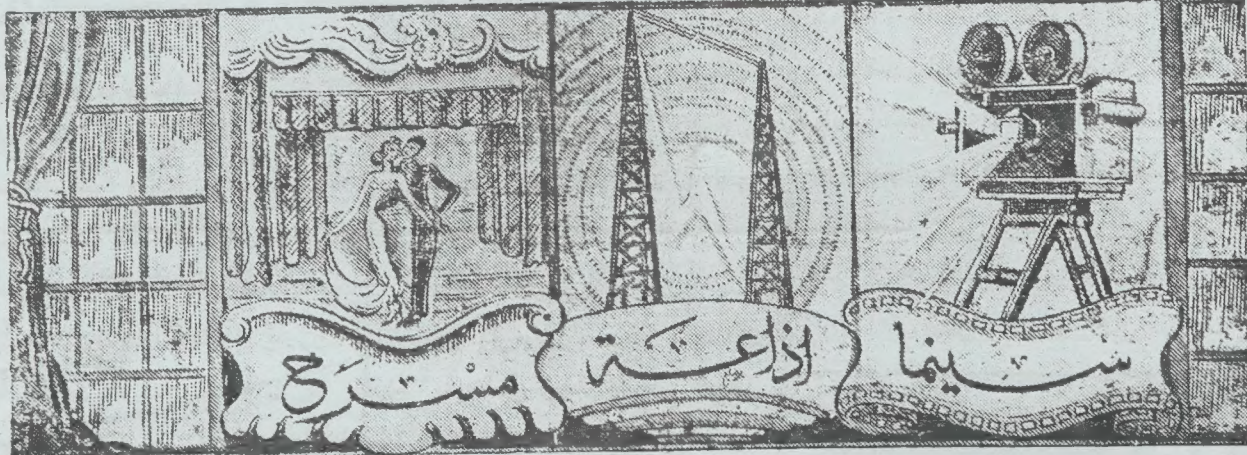 سينما
إذاعة
مسرح